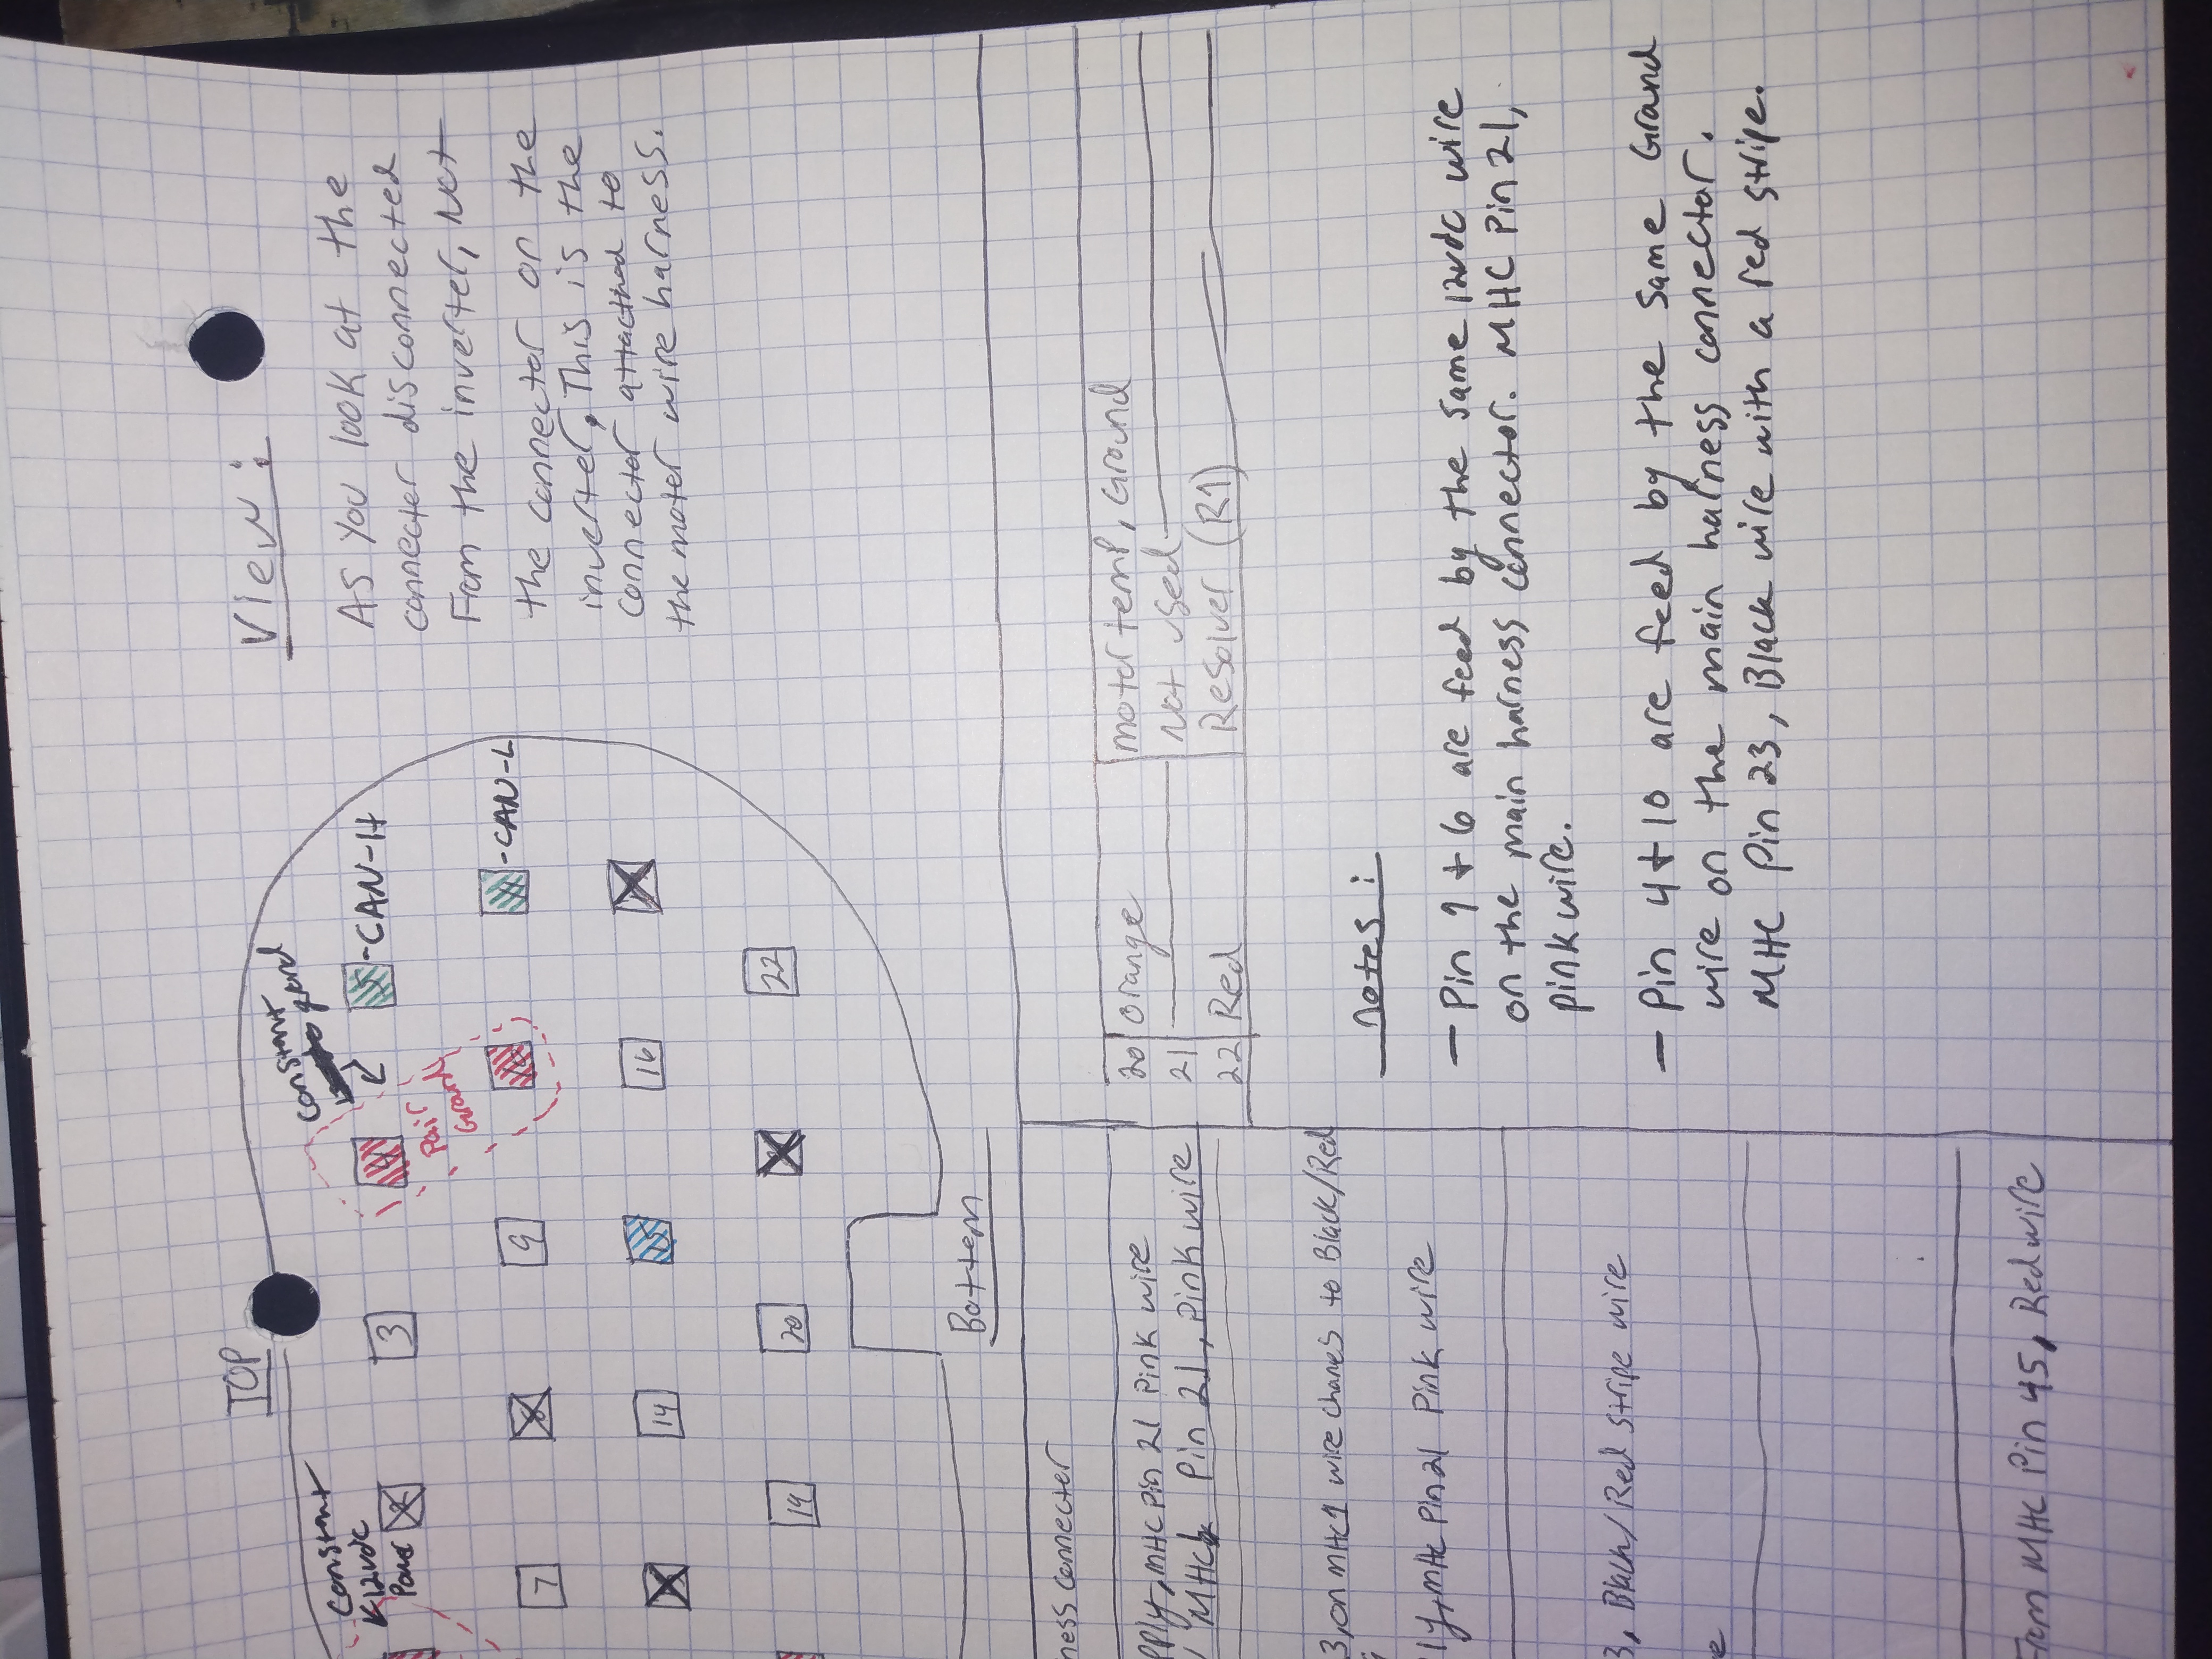 TOP
View:
As you look at the
connecter disconnected
From the inverter, not
the connector on the
inverter, This is the
connector attached to
the moter wire harness.
constant
12vdc
constant
3
5 -CAN-H
Pair
Ground
7
8
9
-CAN-L
14
15
16
19
20
22
Bottem
ness connecter
20 orange motor temp, Ground
pply, MHC Pin 21 Pink wire
21 not used
MHC Pin 21, Pink wire
22 Red Resolver (R1)
3, on MHC1 wire changes to Black/Red
ly, MHC Pin 21 Pink wire
3, Black/Red stripe wire
From MHC Pin 45, Red wire
Notes:
- Pin 9 + 6 are feed by the same 12vdc wire
on the main harness connector. MHC Pin 21,
pink wire.
- Pin 4 + 10 are feed by the same Grand
wire on the main harness connector.
MHC Pin 23, Black wire with a red stripe.